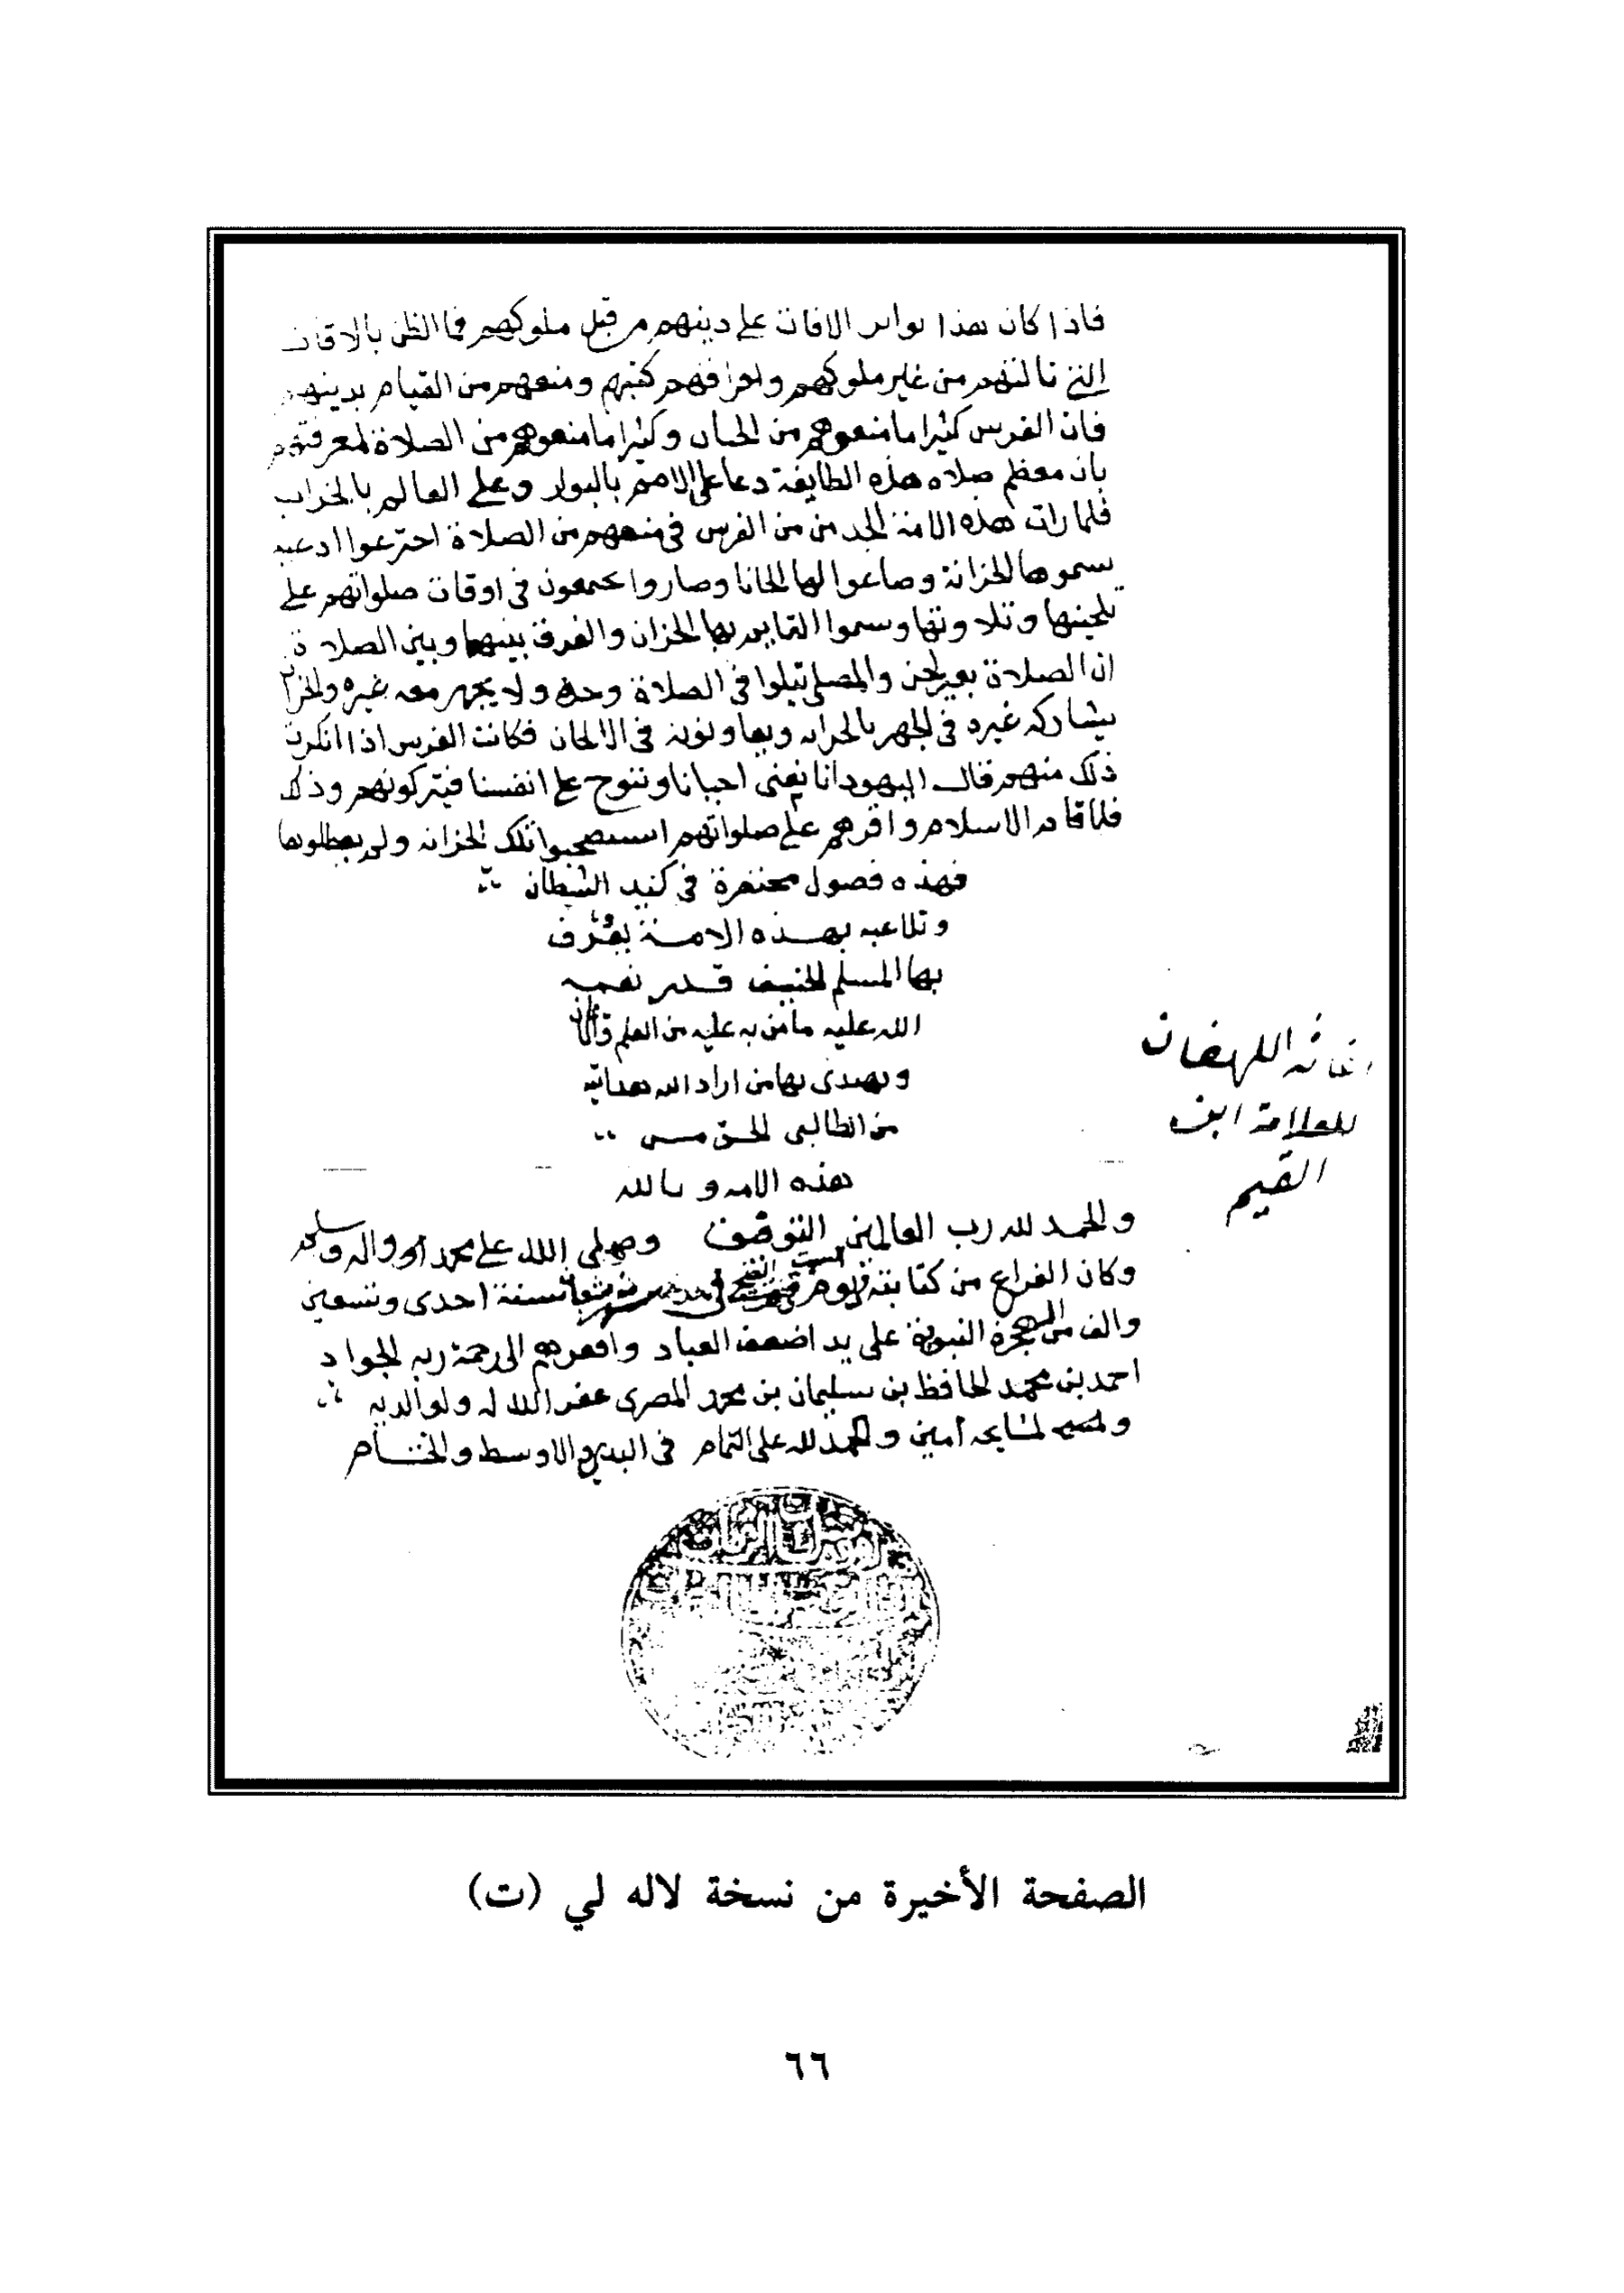 فاذا كان هذا تواتر الافات على دينهم من قبل ملوكهم فما الظن بالافات
التي نالتهم من غير ملوكهم واحراقهم كتبهم ومنعهم من القيام بدينهم
فان الفرس كثيرا ما منعوهم من الختان وكثيرا ما منعوهم من الصلاة لمعرفتهم
بان معظم صلاة هذه الطايفة دعا على الامم بالبوار وعلى العالم بالخراب
فلما رات هذه الامة الجد من الفرس في منعهم من الصلاة اخترعوا ادعية
سموها الخزانة وصاغوا لها الحانا وصاروا يجتمعون في اوقات صلواتهم على
تلحينها وتلاوتها وسموا القايم بها الخزان والفرق بينهما وبين الصلاة
ان الصلاة بغير لحن والمصلي يتلوا في الصلاة وحده ولا يجهر معه غيره والخزان
يشاركه غيره في الجهر بالخزانه ويعاونونه في الالحان فكانت الفرس اذا انكرت
ذلك منهم قالت اليهود انا نغني احيانا وننوح على انفسنا فيتركونهم وذلك
فلما قام الاسلام واقرهم على صلواتهم استصحبوا تلك الخزانه ولم يعطلوها
فهذه فصول مختصرة في كيد الشيطان
وتلاعبه بهذه الامة يعرف
بها المسلم الحنيف قدر نعمة
الله عليه وما من به عليه من العلم والايمان
ويهدي بها من اراد الله هدايته
من الطالبي الحق من
هذه الامه وبالله
التوفيق
والحمد لله رب العالمين وصلى الله على محمد واله وسلم
وكان الفراغ من كتابته يوم السبت في شهر شعبان سنة احدى وتسعين
والف من الهجرة النبوية على يد اضعف العباد وافقرهم الى رحمة ربه الجواد
احمد بن محمد الحافظ بن سليمان بن محمد المصري غفر الله له ولوالديه
ولمشايخه امين والحمد لله على التمام في البدء والاوسط والختام
اغاثه اللهفان
للعلامة ابن
القيم
الصفحة الأخيرة من نسخة لاله لي (ت)
٦٦